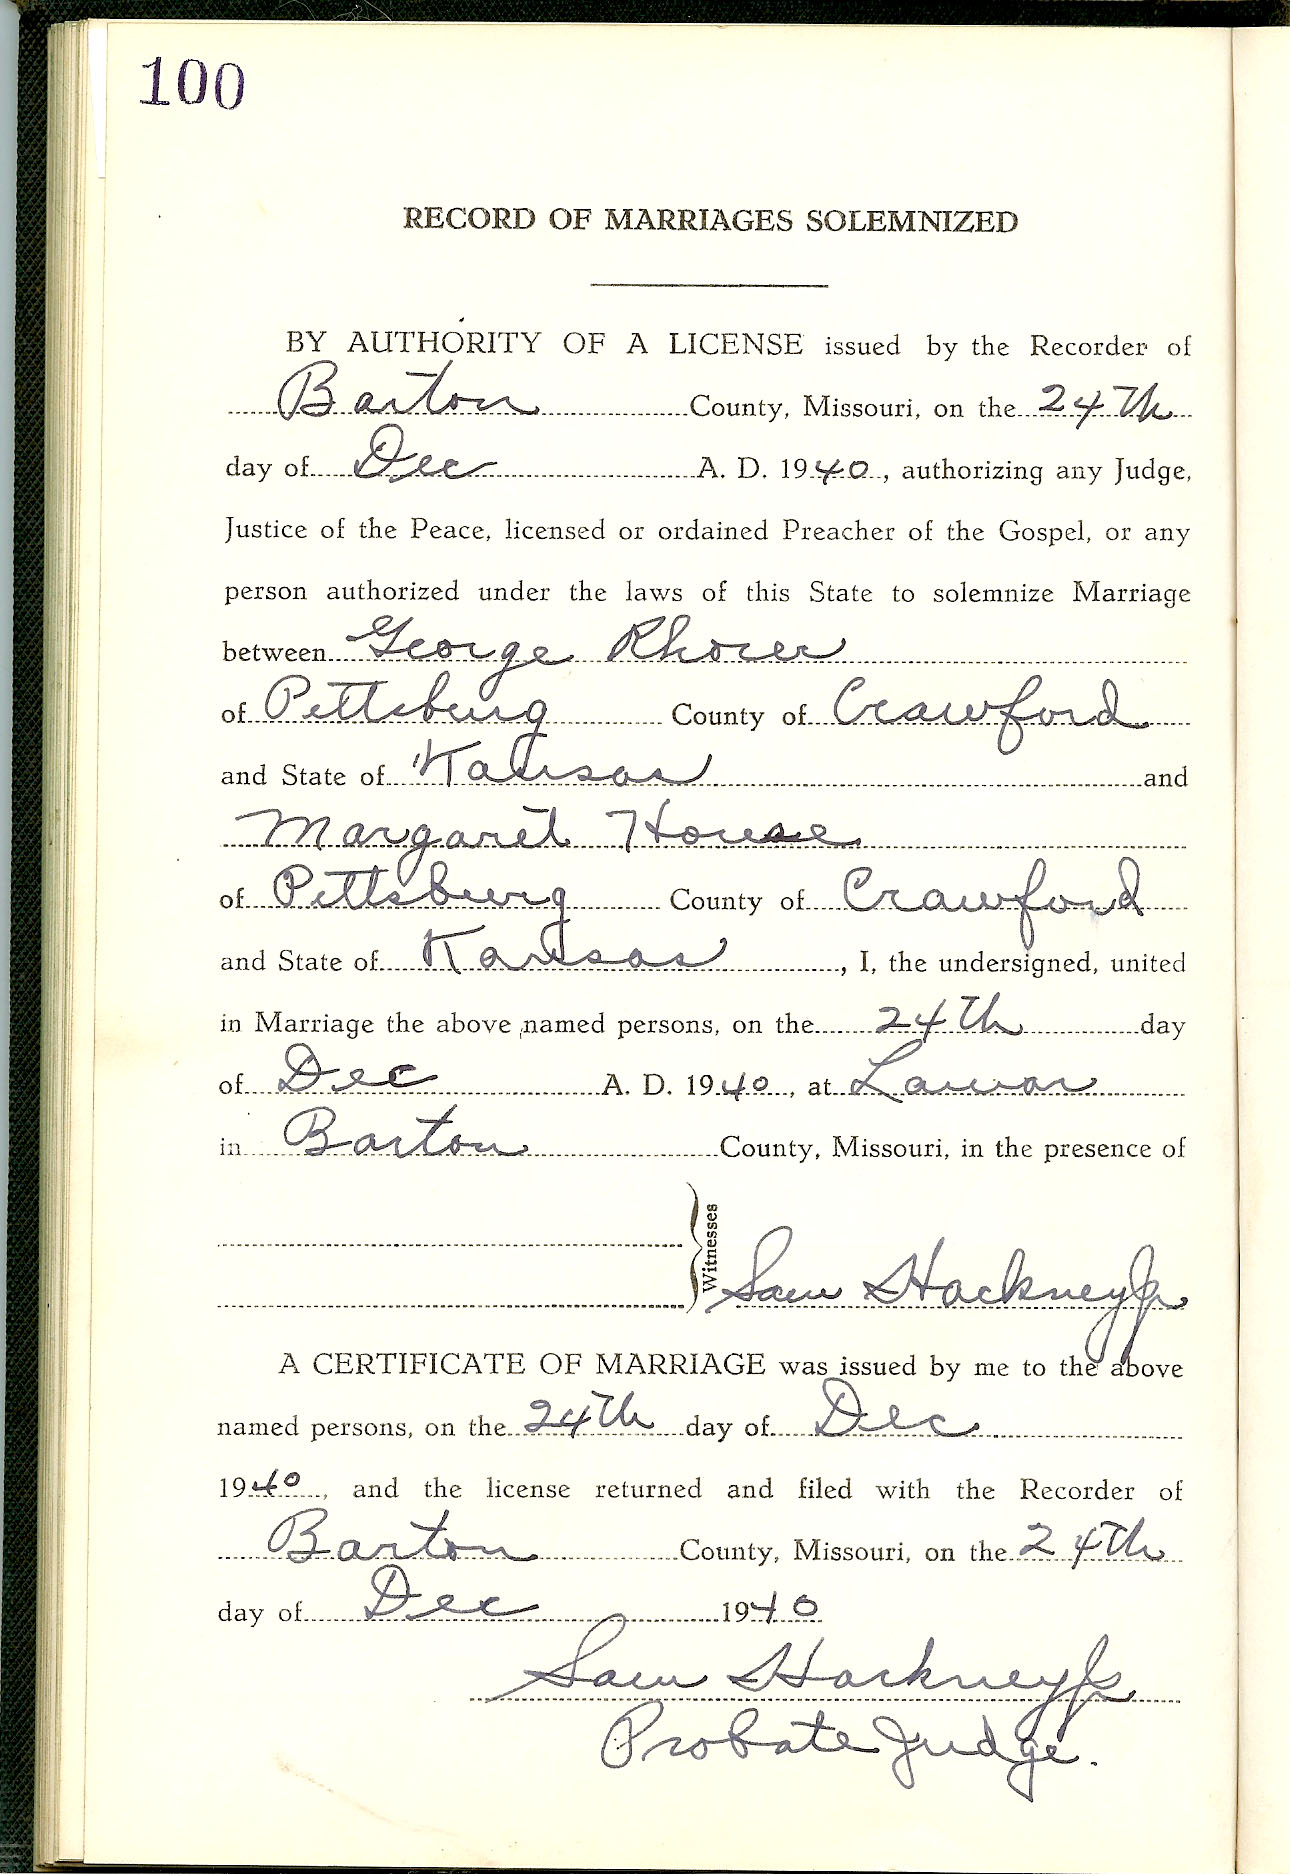 100
RECORD OF MARRIAGES SOLEMNIZED
BY AUTHORITY OF A LICENSE issued by the Recorder of
Barton County, Missouri, on the 24th
day of Dec A. D. 1940, authorizing any Judge,
Justice of the Peace, licensed or ordained Preacher of the Gospel, or any
person authorized under the laws of this State to solemnize Marriage
between George Rhorer
of Pittsburg County of Crawford
and State of Kansas and
Margaret House
of Pittsburg County of Crawford
and State of Kansas, I, the undersigned, united
in Marriage the above named persons, on the 24th day
of Dec A. D. 1940, at Lamar
in Barton County, Missouri, in the presence of
Witnesses
Sam Hackney Jr
A CERTIFICATE OF MARRIAGE was issued by me to the above
named persons, on the 24th day of Dec
1940, and the license returned and filed with the Recorder of
Barton County, Missouri, on the 24th
day of Dec 1940
Sam Hackney Jr
Probate Judge.